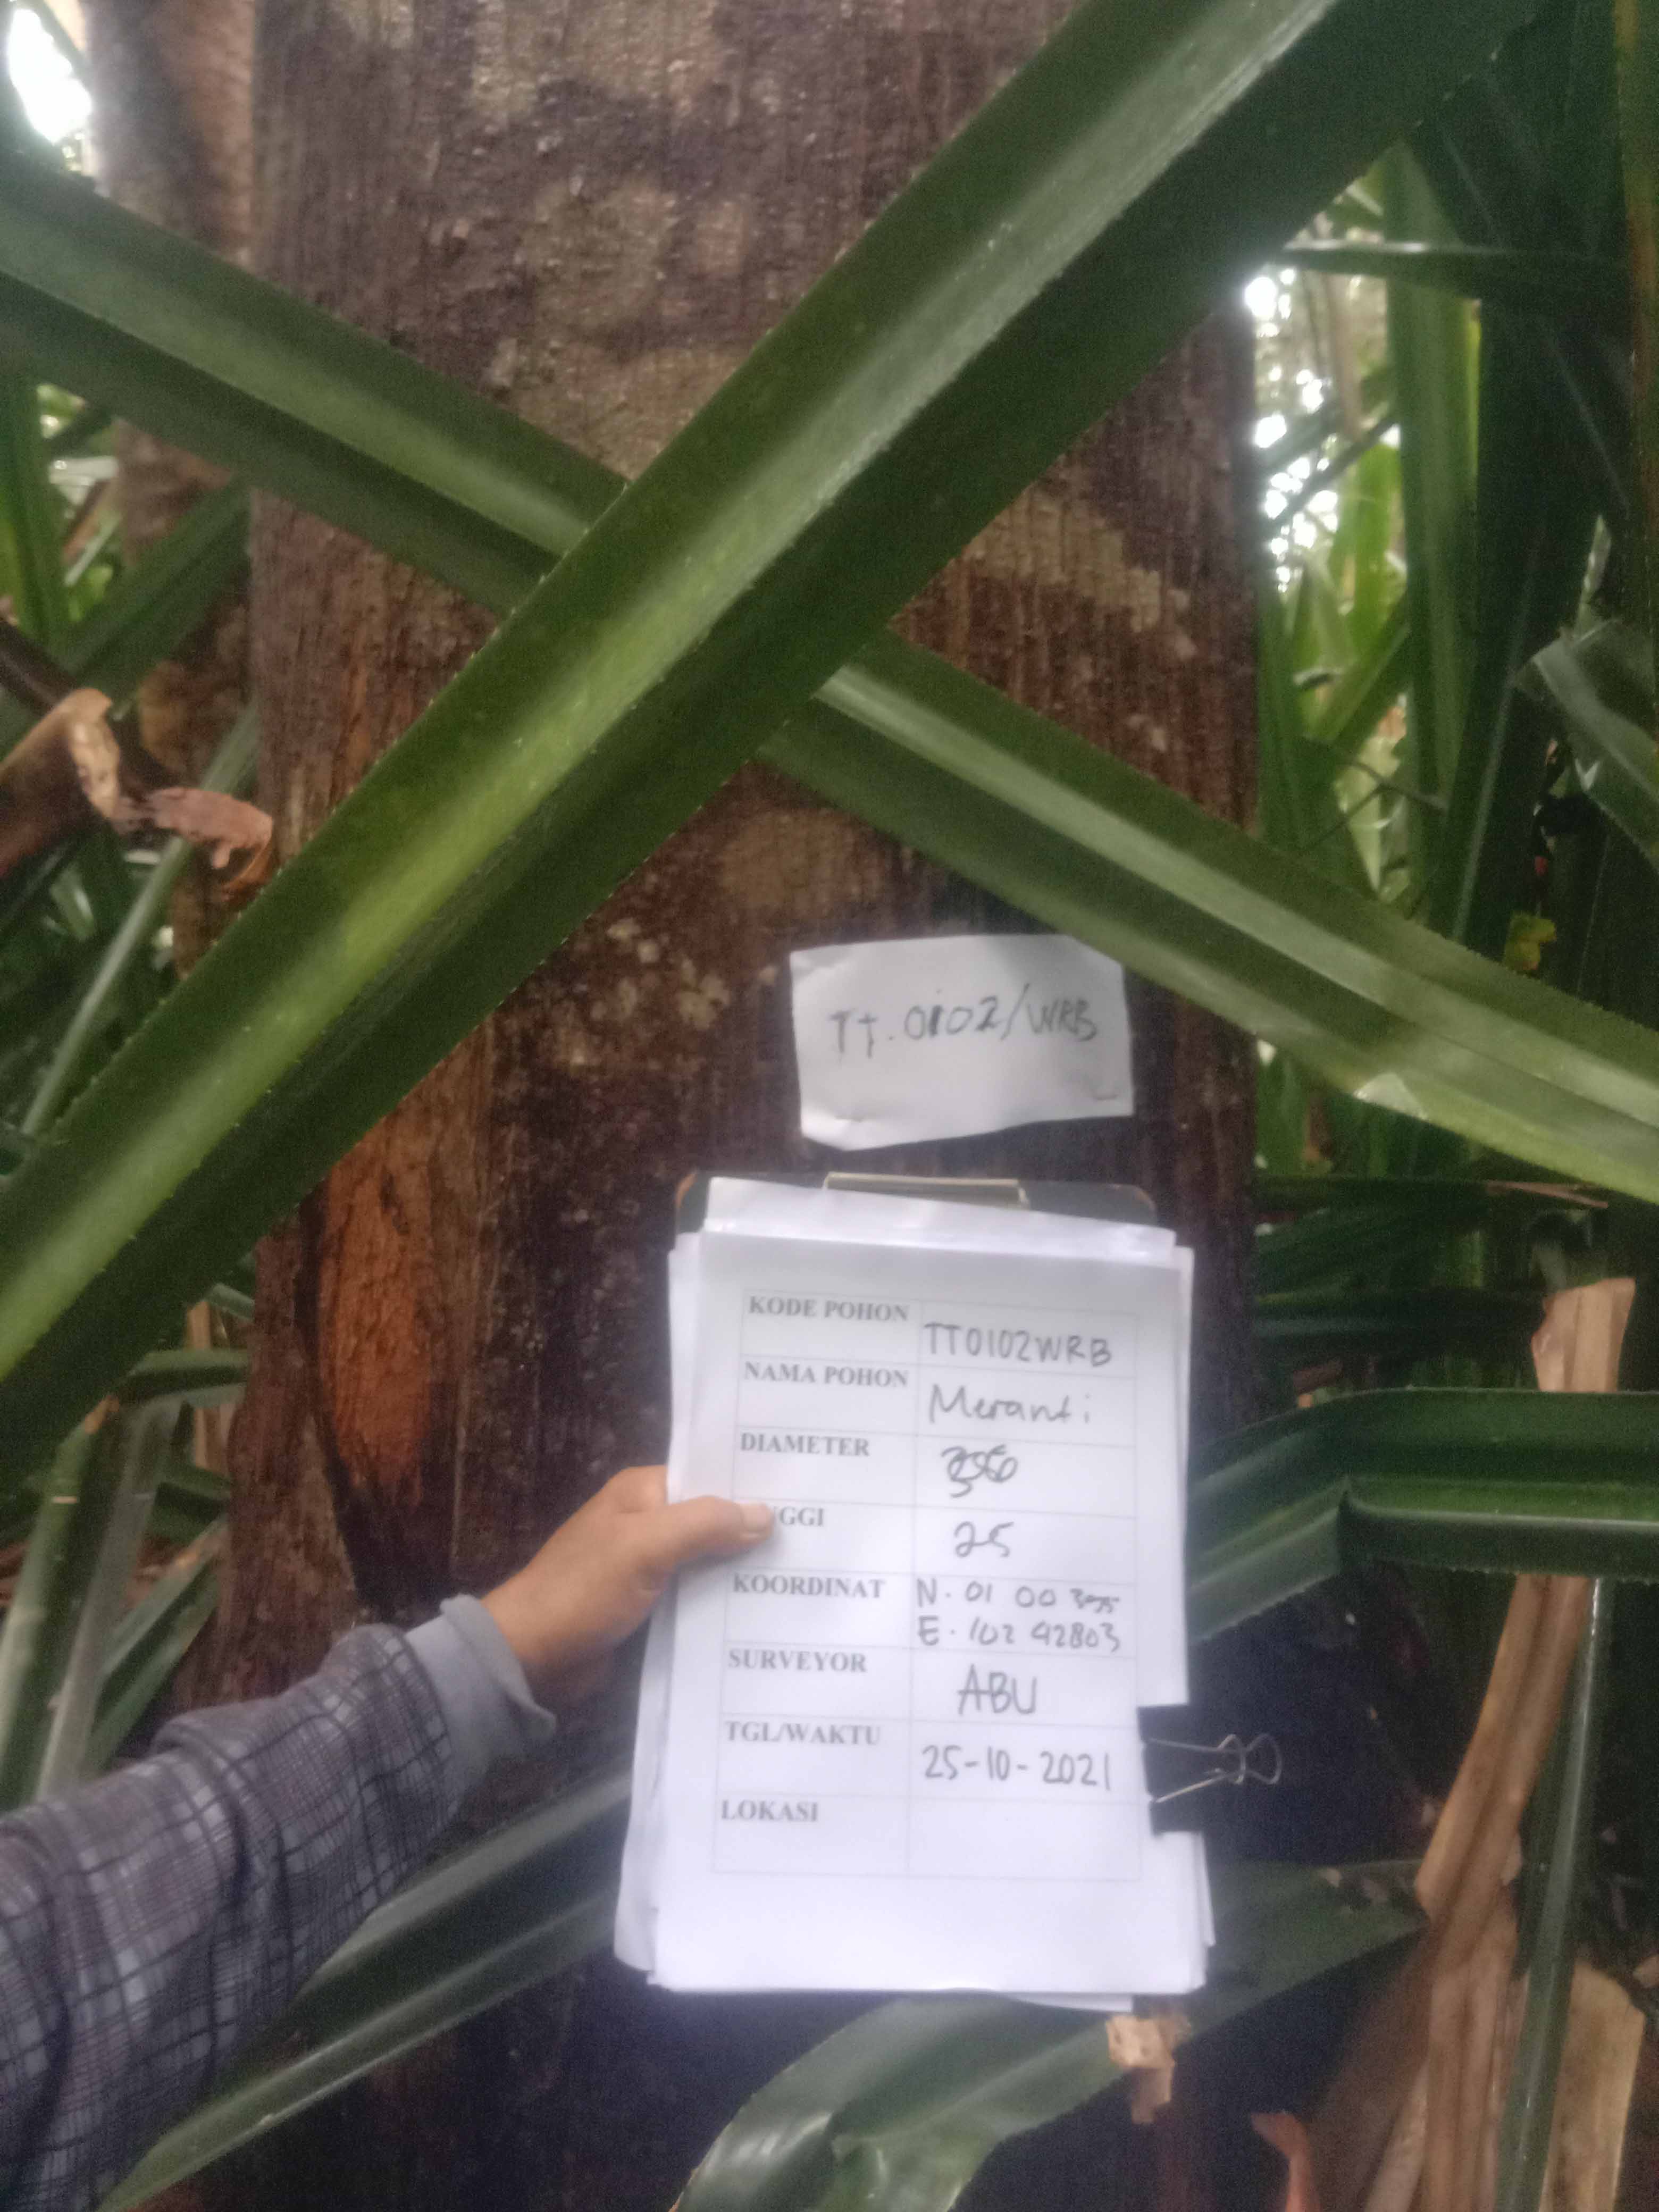 TT.0102/WRB
KODE POHON TT0102WRB
NAMA POHON Meranti
DIAMETER
GGI 25
KOORDINAT N. 01 00
E. 102 42803
SURVEYOR ABU
TGL/WAKTU 25-10-2021
LOKASI